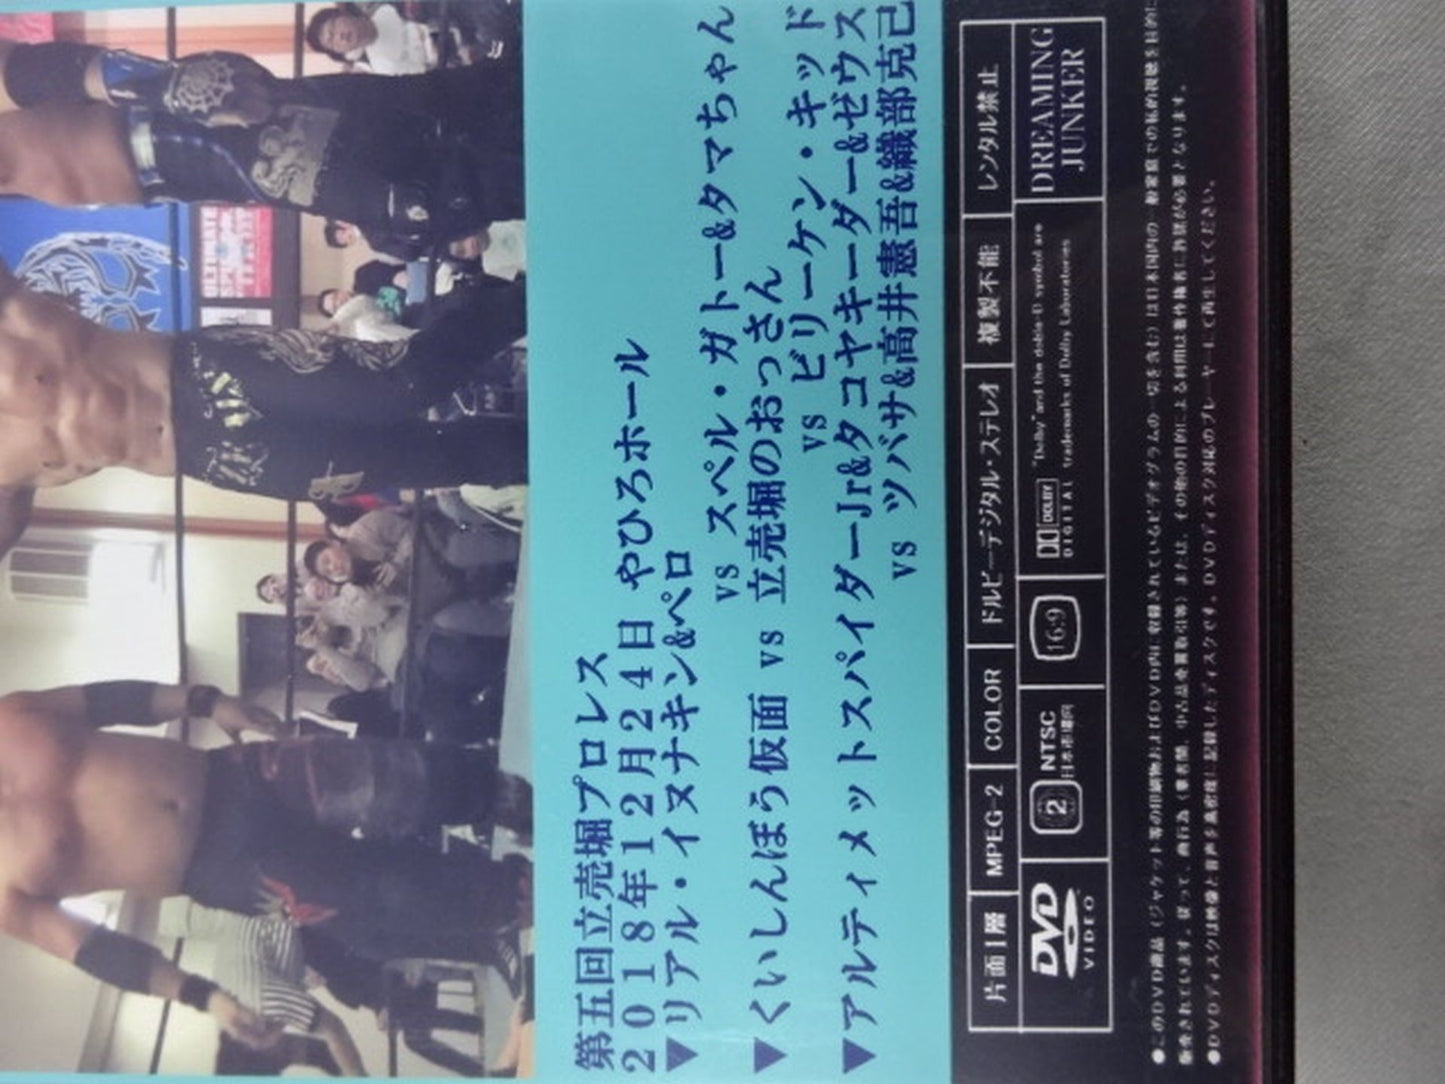 第五回立売堀プロレス
2018年12月24日 やひろホール
▼リアル・イヌナキン&ペロ
vs スペル・ガトー&タマちゃん
▼くいしんぼう仮面 vs 立売堀のおっさん
vs ビリーケン・キッド
▼アルティメットスパイダーJr&タコヤキーダー&ゼウス
vs ツバサ&高井憲吾&織部克己
片面1層 MPEG-2 COLOR ドルビーデジタル・ステレオ 複製不能 レンタル禁止
DVD VIDEO
2 NTSC 日本市場向
16:9
DOLBY DIGITAL
"Dolby" and the doble-D symbol are
trademarks of Dolby Laboratories
DREAMING
JUNKER
●このDVD商品(ジャケット等の印刷物およびDVD内に収録されているビデオグラムの一切を含む)は日本国内の一般家庭での私的視聴を目的に
販売されています。従って、商行為(業者間、中古品売買取引等)または、その他の目的による利用は著作権者に許諾が必要となります。
●DVDディスクは映像と音声を高密度に記録したディスクです。DVDディスク対応のプレーヤーにて再生してください。
ULTIMATE